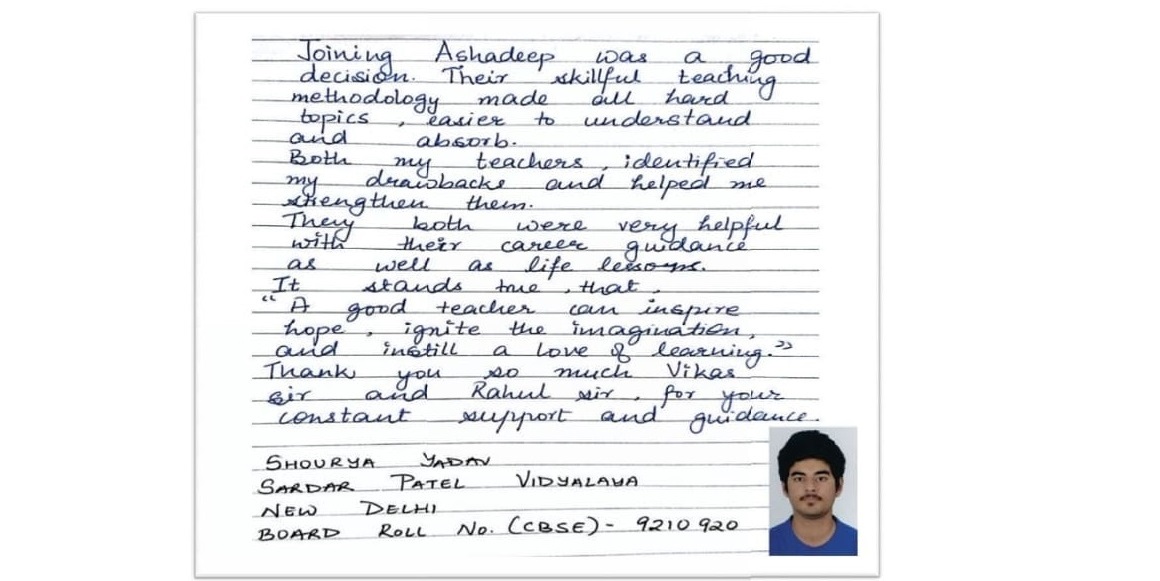 Joining Ashadeep was a good
decision. Their skillful teaching
methodology made all hard
topics , easier to understand
and absorb.
Both my teachers , identified
my drawbacks and helped me
strengthen them.
They both were very helpful
with their career guidance
as well as life lessons.
It stands true , that ,
“ A good teacher can inspire
hope , ignite the imagination,
and instill a love of learning.”
Thank you so much Vikas
sir and Rahul sir , for your
constant support and guidance.
SHOURYA YADAV
SARDAR PATEL VIDYALAYA
NEW DELHI
BOARD ROLL No. (CBSE) - 9210920